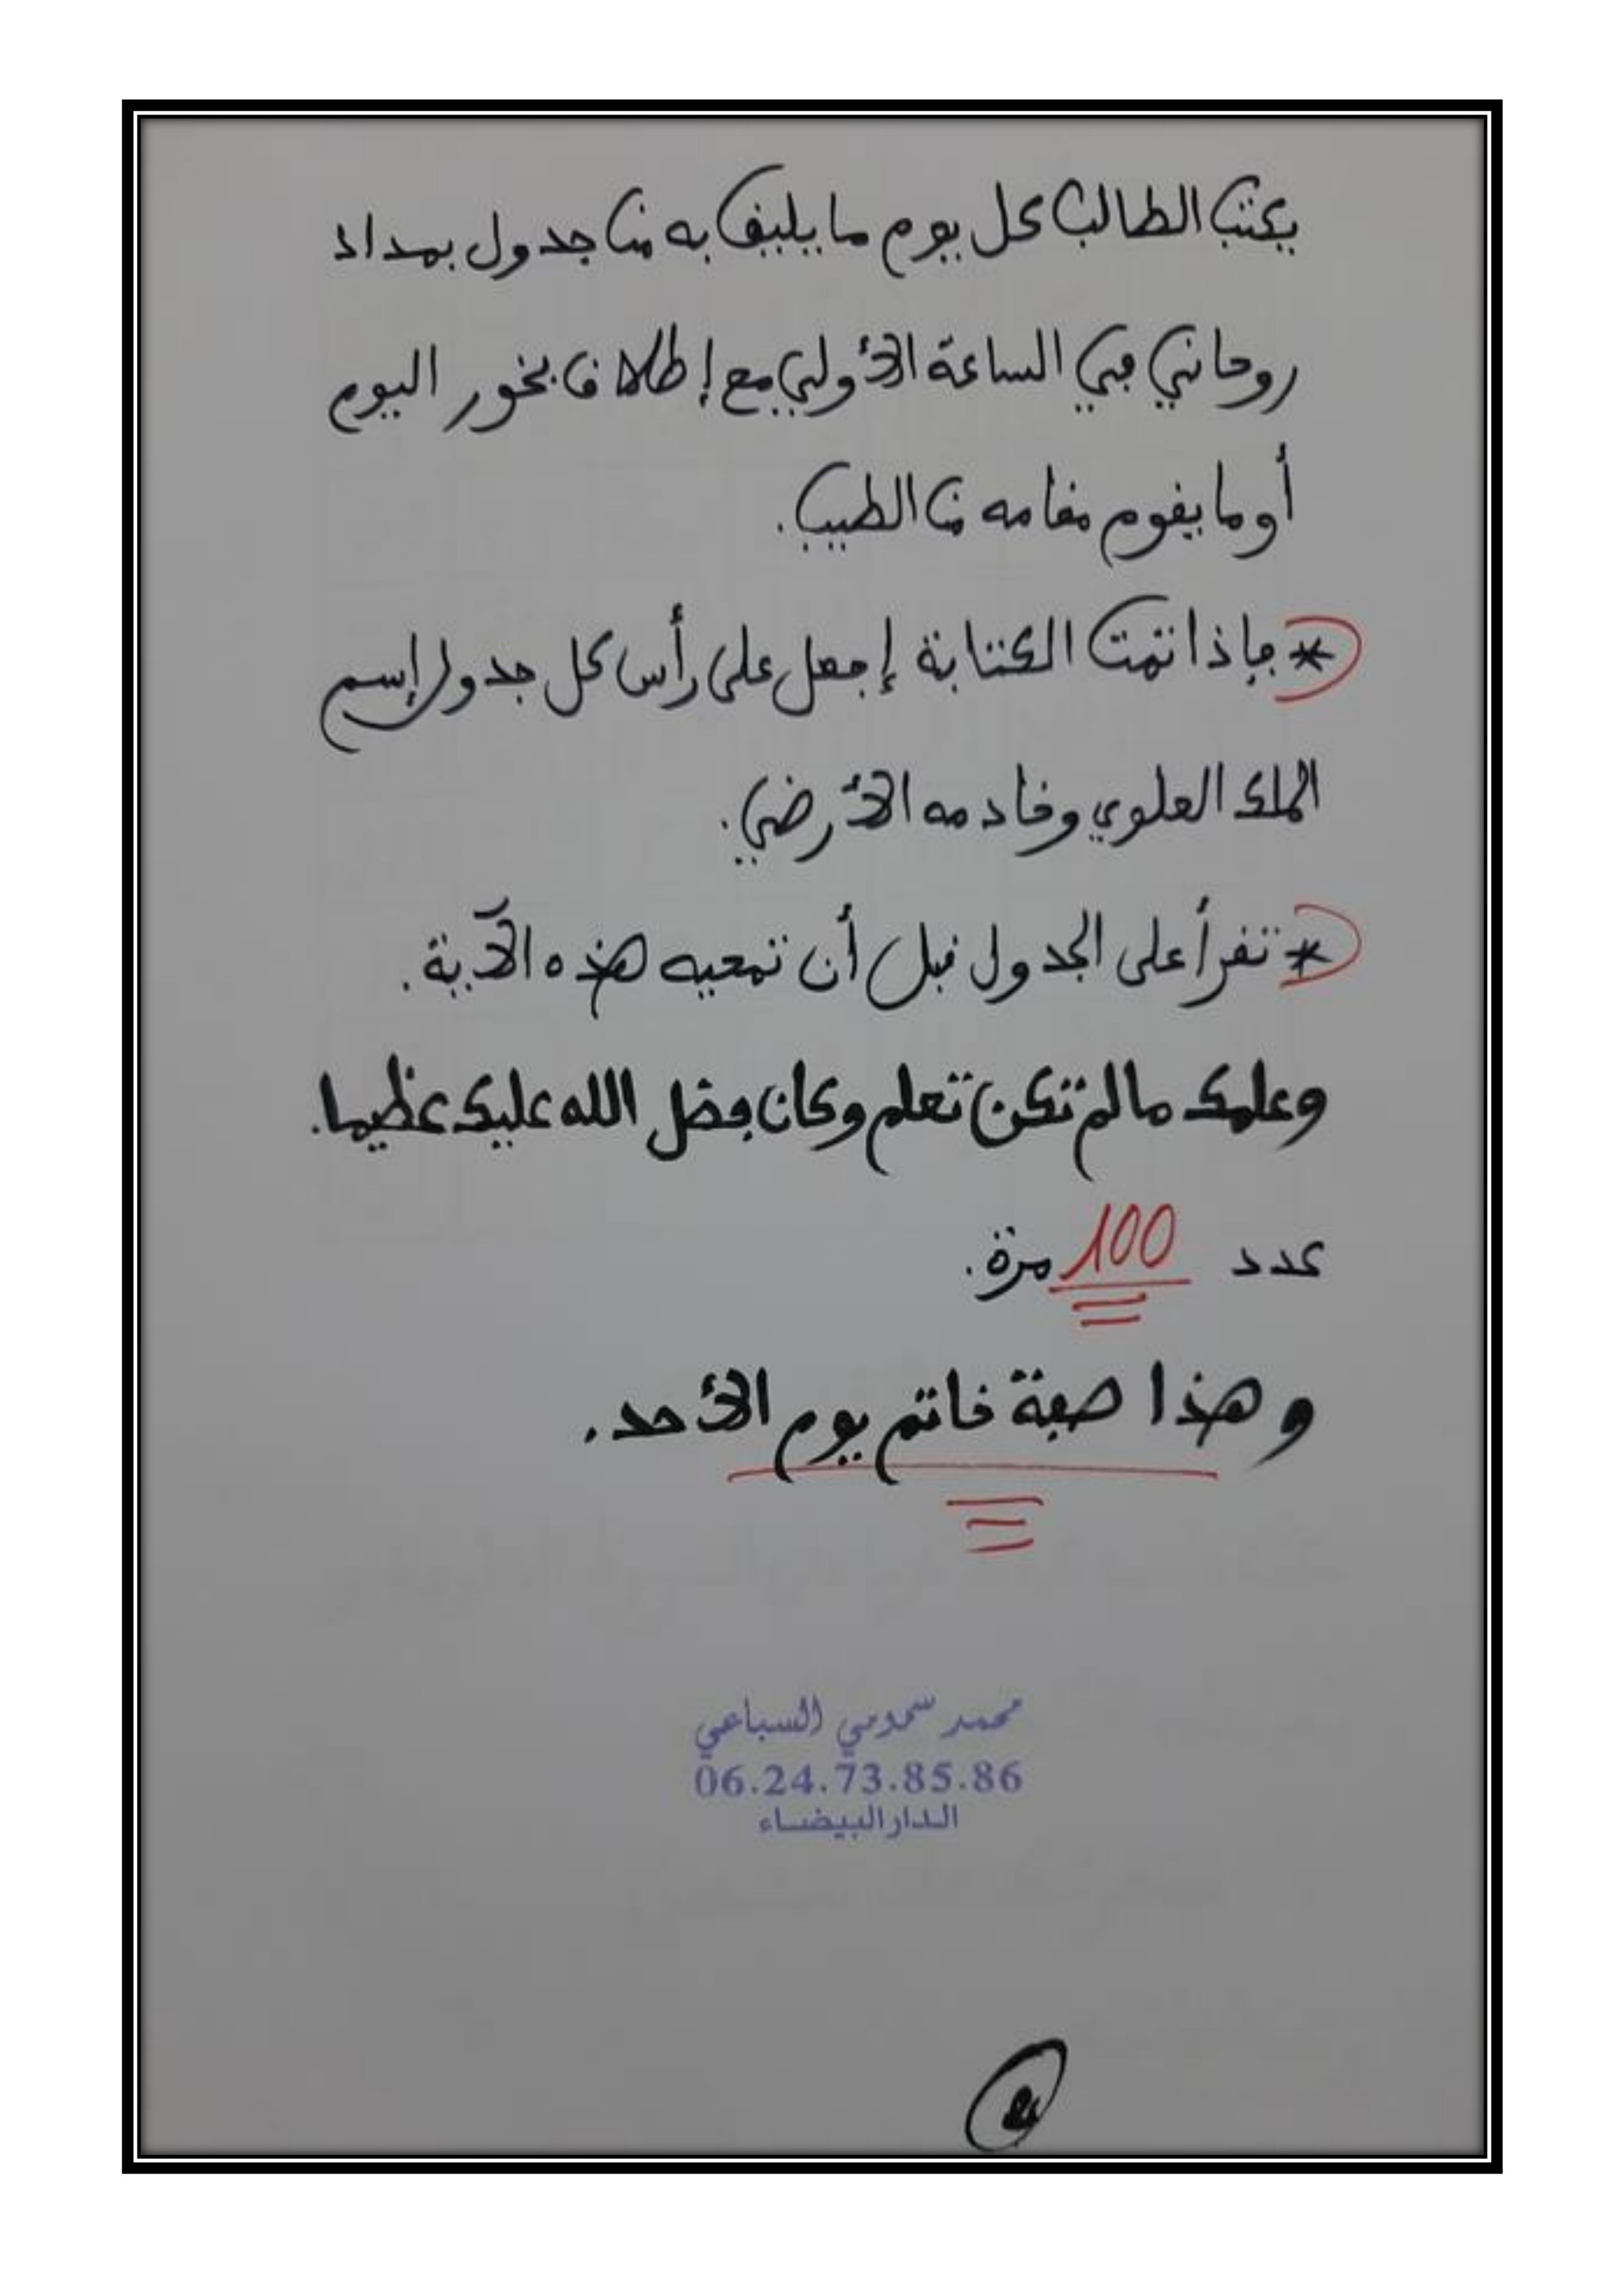 يكتب الطالب كل يوم ما يليق به من جدول بمداد
روحاني في الساعة الأولى مع إطلاق بخور اليوم
أو ما يقوم مقامه من الطيب.
* فإذا تمت الكتابة إجعل على رأس كل جدول إسم
الملك العلوي وخادمه الأرضي.
* تقرأ على الجدول قبل أن تمحيه هذه الآية.
وعلمك ما لم تكن تعلم وكان فضل الله عليك عظيما.
عدد 100 مرة.
وهذا صفة خاتم يوم الأحد.
محمد سمومي السباعي
06.24.73.85.86
الدار البيضاء